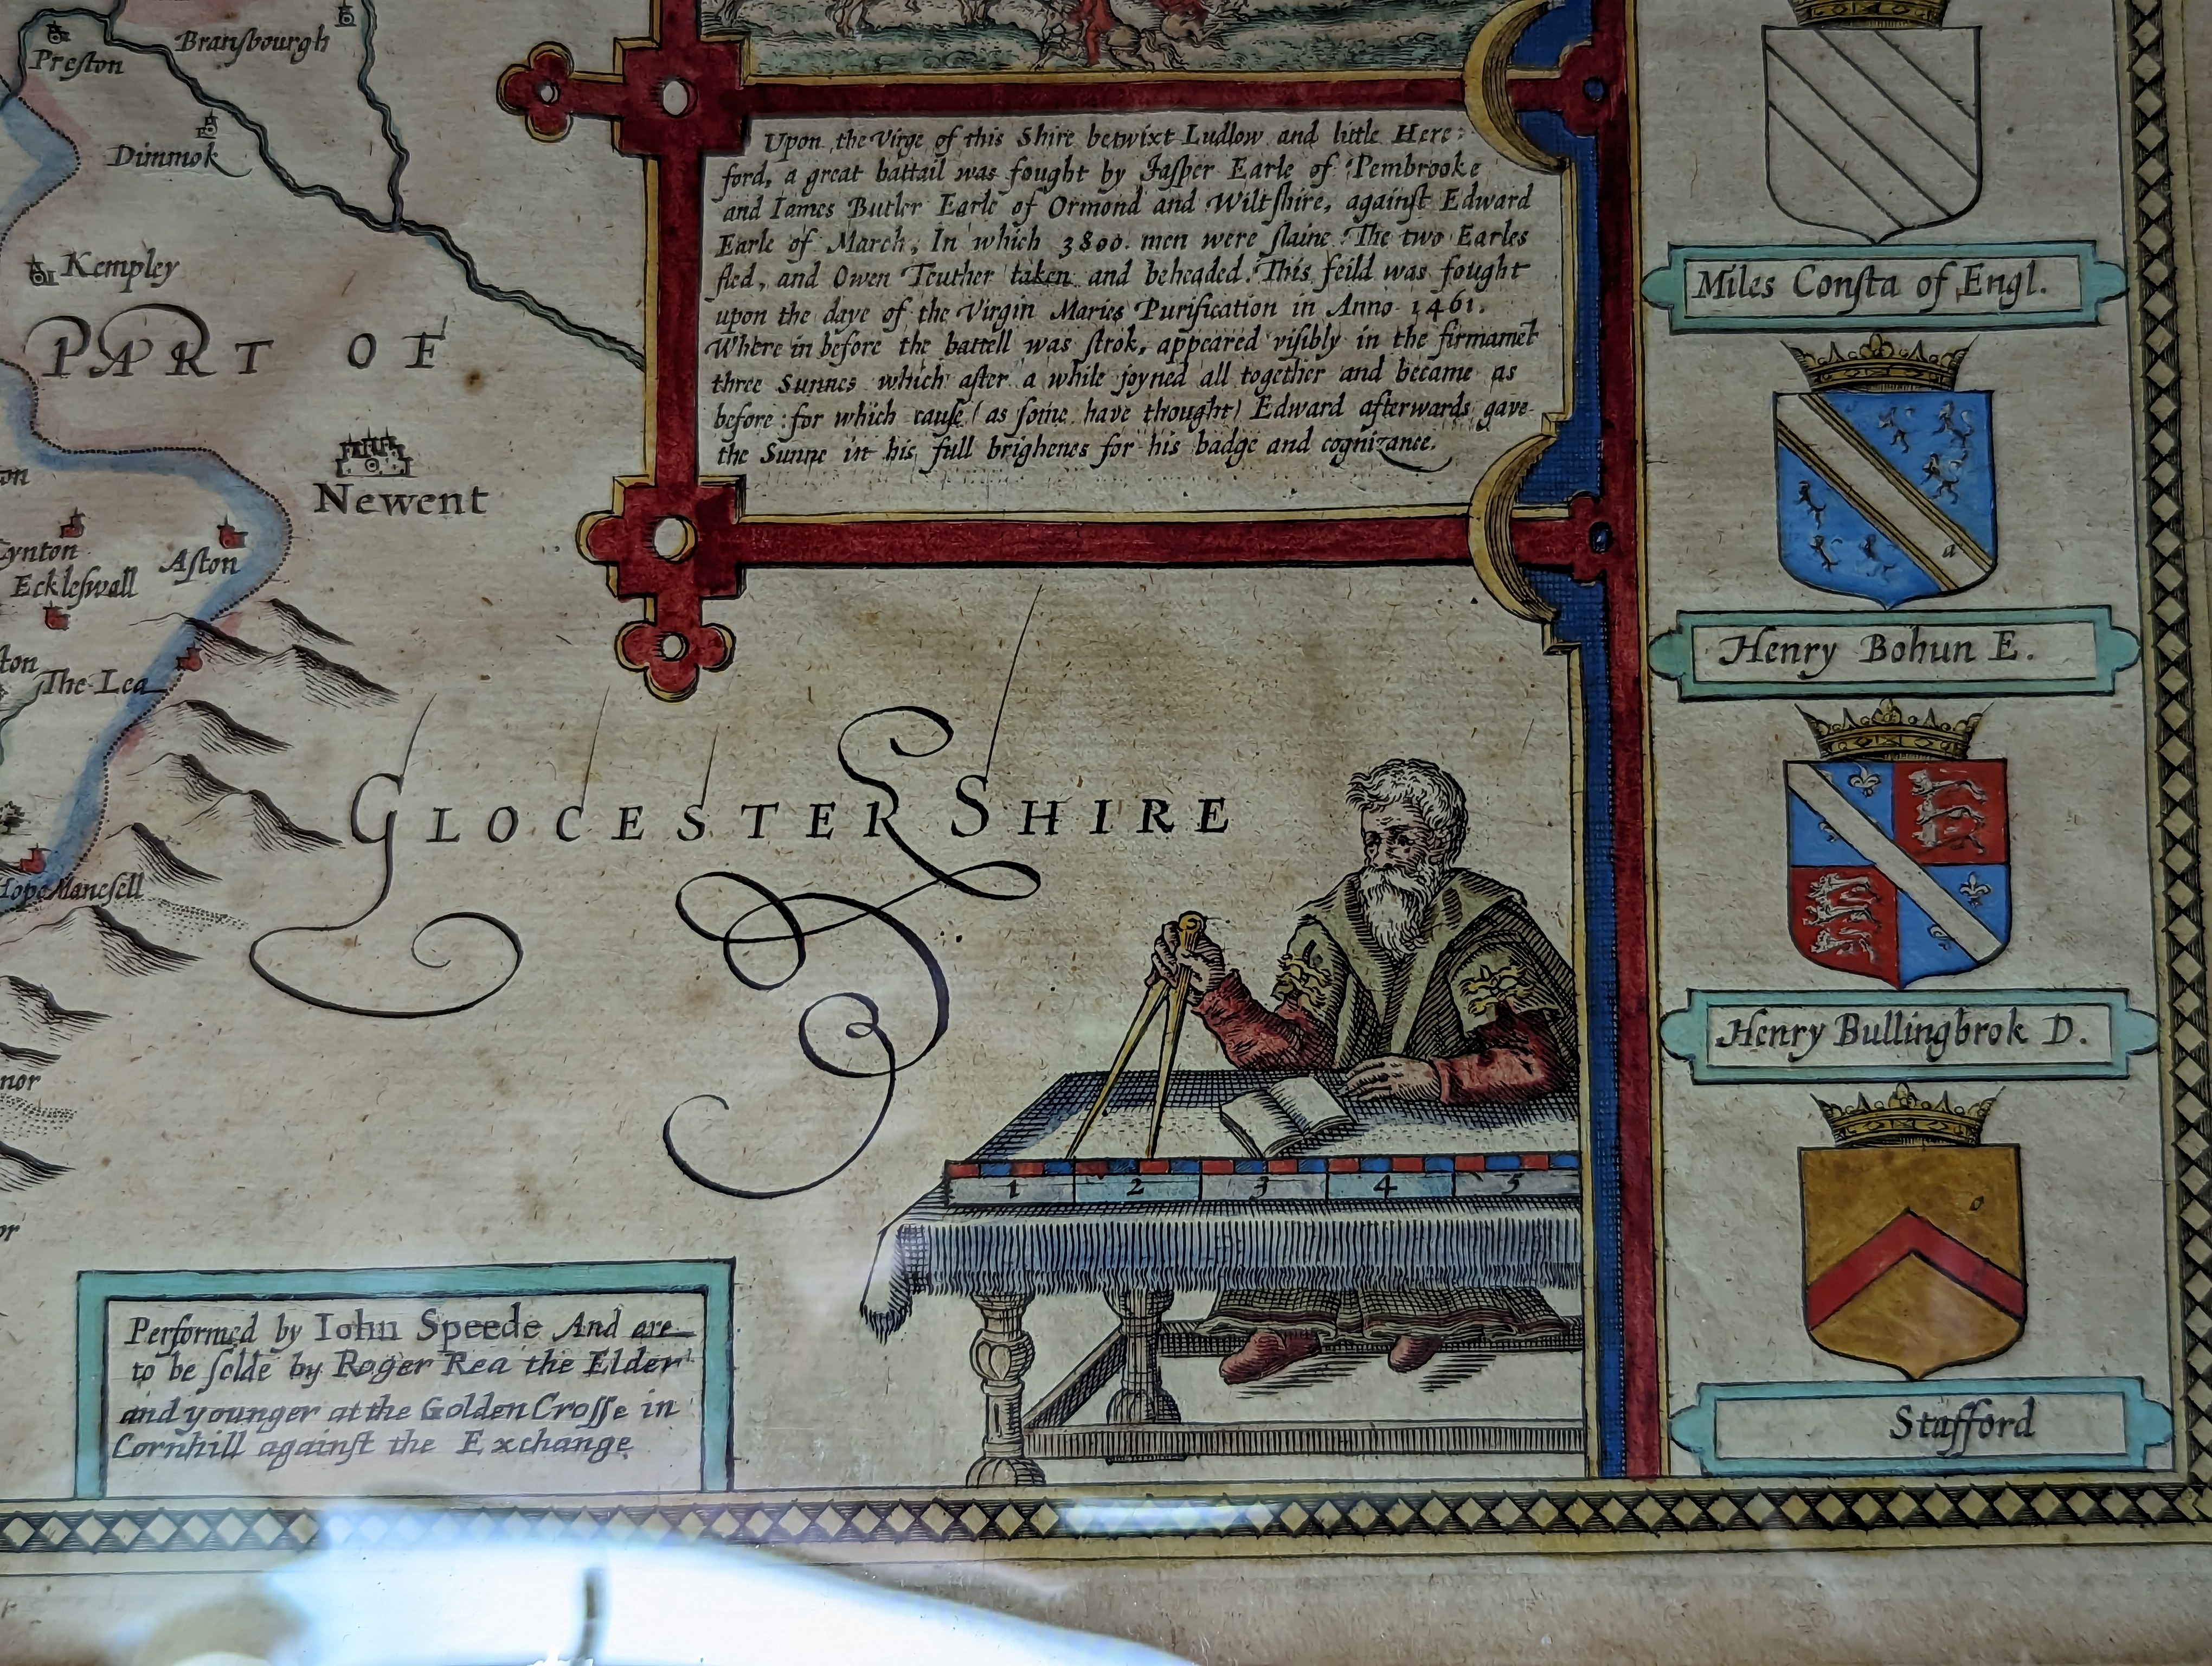 Preston
Bransbourgh
Dimmok
Kempley
PART OF
Newent
Aston
Ecklesswall
The Lea
Hope Manesell
GLOCESTER SHIRE
Upon the Virge of this Shire betwixt Ludlow and little Here:
ford, a great battail was fought by Jasper Earle of Pembrooke
and Iames Butler Earle of Ormond and Wiltshire, against Edward
Earle of March, In which 3800. men were slaine. The two Earles
fled, and Owen Teuther taken and beheaded. This feild was fought
upon the daye of the Virgin Maries Purification in Anno 1461.
Where in before the battell was strok, appeared visibly in the firmamet
three Sunnes which after a while joyned all together and became as
before: for which cause (as some have thought) Edward afterwards gave
the Sunne in his full brighenes for his badge and cognizance.
1 2 3 4 5
Performed by Iohn Speede And are
to be solde by Roger Rea the Elder
and younger at the Golden Crosse in
Cornhill against the Exchange
Miles Consta of Engl.
a
Henry Bohun E.
Henry Bullingbrok D.
o
Stafford